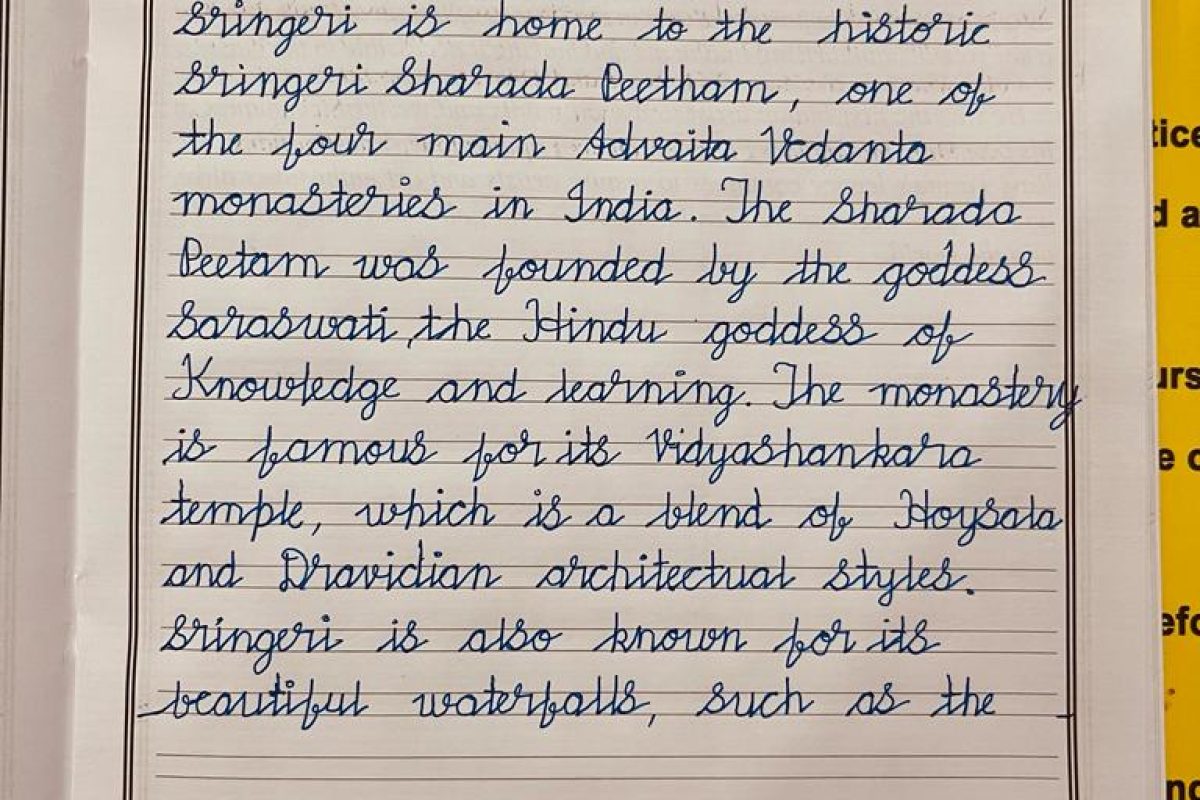 Sringeri is home to the historic
Sringeri Sharada Peetham, one of
the four main Advaita Vedanta
monasteries in India. The Sharada
Peetam was founded by the goddess
Saraswati, the Hindu goddess of
Knowledge and learning. The monastery
is famous for its Vidyashankara
temple, which is a blend of Hoysala
and Dravidian architectual styles.
Sringeri is also known for its
beautiful waterfalls, such as the